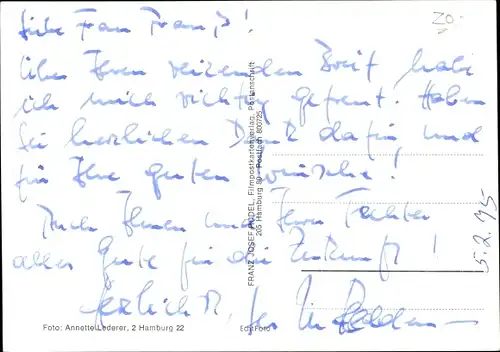 Liebe Frau Franz!
über Ihren reizenden Brief habe
ich mich richtig gefreut. Haben
Sie herzlichen Dank dafür, und
für Ihre guten Wünsche!
Auch Ihnen und Ihrer Tochter
alles Gute für die Zukunft!
Herzlichst, Ihr
5.2.95
20.
FRANZ JOSEF RÜDEL, Filmpostkartenverlag,
205 Hamburg 80, Postfach 800725
Foto: Annette Lederer, 2 Hamburg 22